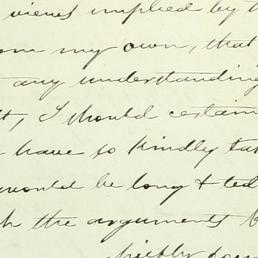 views implied by t
om my own, that
any understanding
it, I should certain
have so kindly ta
would be long & ted
the arguments